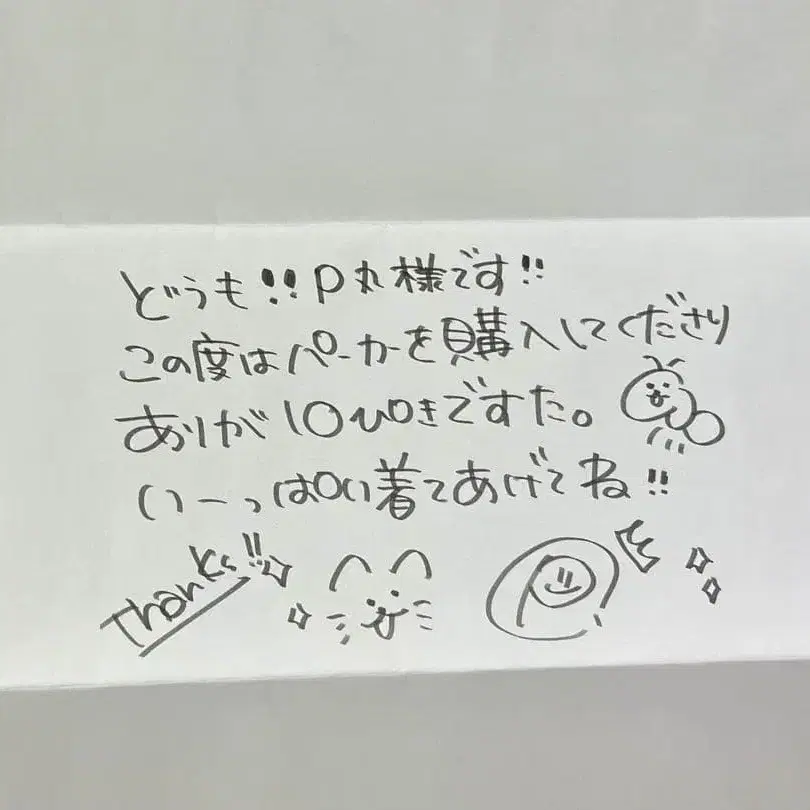 どうも!!P丸様です!!
この度はパーカーを購入してくださり
ありが10ぴきですた。
いーっぱい着てあげてね!!
Thanks!!
P